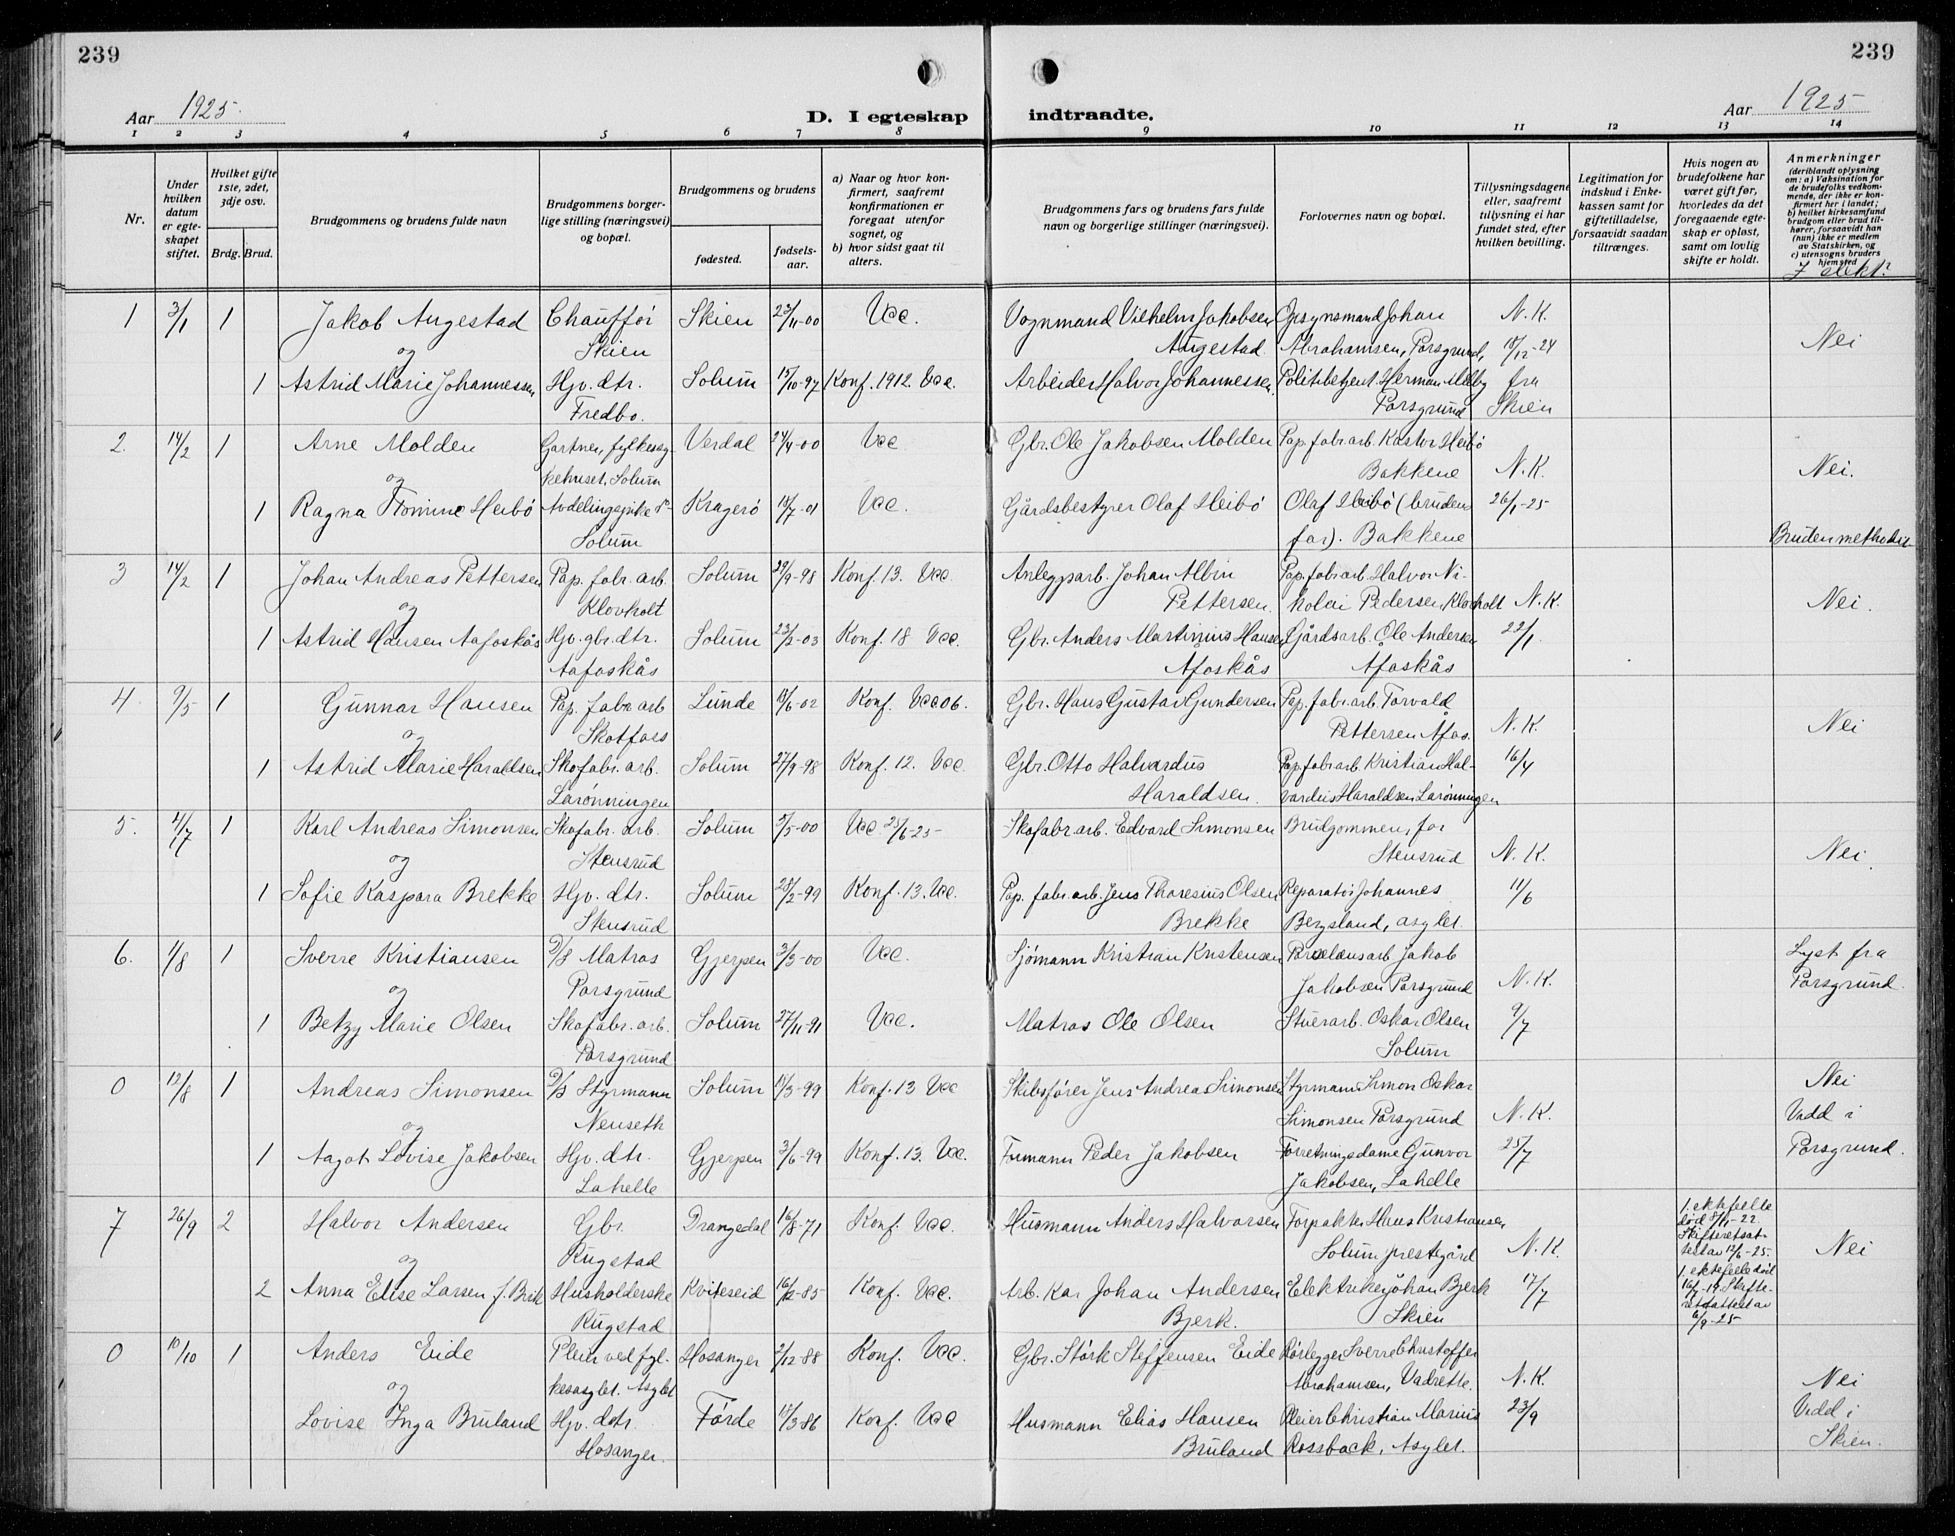 239
239
Aar 1925.
D. I egteskap indtraadte.
Aar 1925
1 2 3 4 5 6 7 8 9 10 11 12 13 14
Nr.
Under hvilken datum er egteskapet stiftet.
Hvilket gifte 1ste, 2det, 3dje osv.
Brdg. Brud.
Brudgommens og brudens fulde navn
Brudgommens borgerlige stilling (næringsvei) og bopæl.
Brudgommens og brudens
fødested.
fødselsaar.
a) Naar og hvor konfirmert, saafremt konfirmationen er foregaat utenfor sognet, og
b) hvor sidst gaat til alters.
Brudgommens fars og brudens fars fulde navn og borgerlige stillinger (næringsvei).
Forlovernes navn og bopæl.
Tillysningsdagene eller, saafremt tillysning ei har fundet sted, efter hvilken bevilling.
Legitimation for indskud i Enkekassen samt for giftetilladelse, forsaavidt saadan tiltrænges.
Hvis nogen av brudefolkene har været gift før, hvorledes da det foregaaende egteskap er opløst, samt om lovlig skifte er holdt.
Anmerkninger (deriblandt oplysning om: a) Vaksination for de brudefolks vedkommende, der ikke er konfirmert her i landet; b) hvilket kirkesamfund brudgom eller brud tilhører, forsaavidt han (hun) ikke er medlem av Statskirken, og c) utensogns bruders hjemsted
I slekt?
1 3/1 1 Jakob Augestad Chauffør Skien 23/11-00 Vee. Vognmand Vilhelm Jakobsen Opsynsmand Johan N.K.
og Skien Augestad Abrahamsen, Porsgrund, 18/12-24 Nei
1 Astrid Marie Johannessen Hjv. dtr. Solum 15/10-97 Konf. 1912. Vee. Arbeider Halvor Johannessen Politibetjent Herman Melby fra
Fredbo. Porsgrund Skien
2. 14/2 1 Arne Molden Gartner, fylkessy- Verdal 24/4-00 Vee Gbr. Ole Jakobsen Molden Pap. fabr. arb. Kastor Heibø
og kehuset, Solum Bakkene N.K. Nei.
1 Ragna Tomine Heibø Avdelingspike Kragerø 18/7-01 Vee. Gårdsbestyrer Olaf Heibø Olaf Heibø (brudens 26/1-25
Solum far). Bakkene Bruden methodist.
3 14/2 1 Johan Andreas Pettersen Pap. fabr. arb. Solum 29/9-98 Konf. 13. Vee. Anlegsarb. Johan Albin Pap. fabr. arb. Halvor Ni-
og Klovholt Pettersen. kolai Pedersen, Klovholt N.K. Nei.
1 Astrid Hansen Aafoskås Hjv. gbr. dtr. Solum 23/2-03 Konf. 18 Vee. Gbr. Anders Martinius Hansen Gårdsarb. Ole Andersen 22/1.
Aafoskås Åfoskås Åfoskås
4 9/5 1 Gunnar Hansen Pap. fabr. arb Lunde 18/6-02 Konf. Vee 06. Gbr. Hans Gustav Gundersen Pap. fabr. arb. Torvald
og Skotfoss Pettersen Åfos. N.K. Nei
1 Astrid Marie Haraldsen Skofabr. arb. Solum 27/9-98 Konf. 12. Vee. Gbr. Otto Halvardus Pap. fabr. arb. Kristian Hal- 16/4
Larønningen Haraldsen. vardus Haraldsen Larønningen
5. 4/7 1 Karl Andreas Simonsen Skofabr. arb. Solum 2/5-00 Vee 28/6-25 Skofabr. arb. Edvard Simonsen Brudgommens far
og Stensrud Stensrud N.K. Nei
1 Sofie Kaspara Brekke Hjv. dtr. Solum 28/2-99 Konf. 13. Vee. Pap. fabr. arb. Jens Thoresius Olsen Reparatør Johannes 11/6
Stensrud Brekke Bergsland, asylet.
6. 1/8 1 Sverre Kristiansen D/S Matros Gjerpen 3/3-00 Vee. Sjømann Kristian Kristensen Porselænsarb Jakob Lyst fra
og Porsgrund Jakobsen Porsgrund N.K. Porsgrund.
1 Betzy Marie Olsen Skofabr. arb. Solum 27/11-91 Vee. Matros Ole Olsen Stuerarb. Oskar Olsen 9/7
Porsgrund Solum
0 12/8 1 Andreas Simonsen D/S Styrmann Solum 18/3-99 Konf. 13 Vee Skibsfører Jens Andreas Simonsen Styrmann Simon Oskar Nei
og Nenseth Simonsen Porsgrund N.K. Viedd i
1 Aagot Lovise Jakobsen Hjv. dtr. Gjerpen 3/6-99 Konf. 13. Vee. Formann Peder Jakobsen Forretningsdame Gunvor 25/7 Porsgrund.
Lahelle Jakobsen, Lahelle
7 26/9 2 Halvor Andersen Gbr. Drangedal 16/8-71 Konf. Vee. Husmann Anders Halvorsen Forpakter Hans Kristiansen 1. ektefelle død 5/11-22 Skifteretsattest av 12/6-25.
og Rugstad Solum prestegård N.K. Nei
2 Anna Elise Larsen f. Brik Husholderske Kviteseid 16/12-85 Konf. Vee. Arb. Kar Johan Andersen Elektriker Johan Bjerk 17/7 1. ektefelle død 16/7-19. Skifteretsattest av 6/9-25
Rugstad Bjerk. Skien
0 10/10 1 Anders Eide Pleier ved fyl- Hosanger 2/12-88 Konf. Vee. Gbr. Størk Steffensen Eide Rørlegger Sverre Christoffer
og kesasylet. Asylet Abrahamsen, Vadrette. N.K. Nei
Lovise Inga Bruland Hjv. datr. Førde 18/3-86 Konf. Vee Husmann Elias Hansen Pleier Christian Marius 23/9 Viedd i
Hosanger. Bruland Rossback, Asylet. Skien.